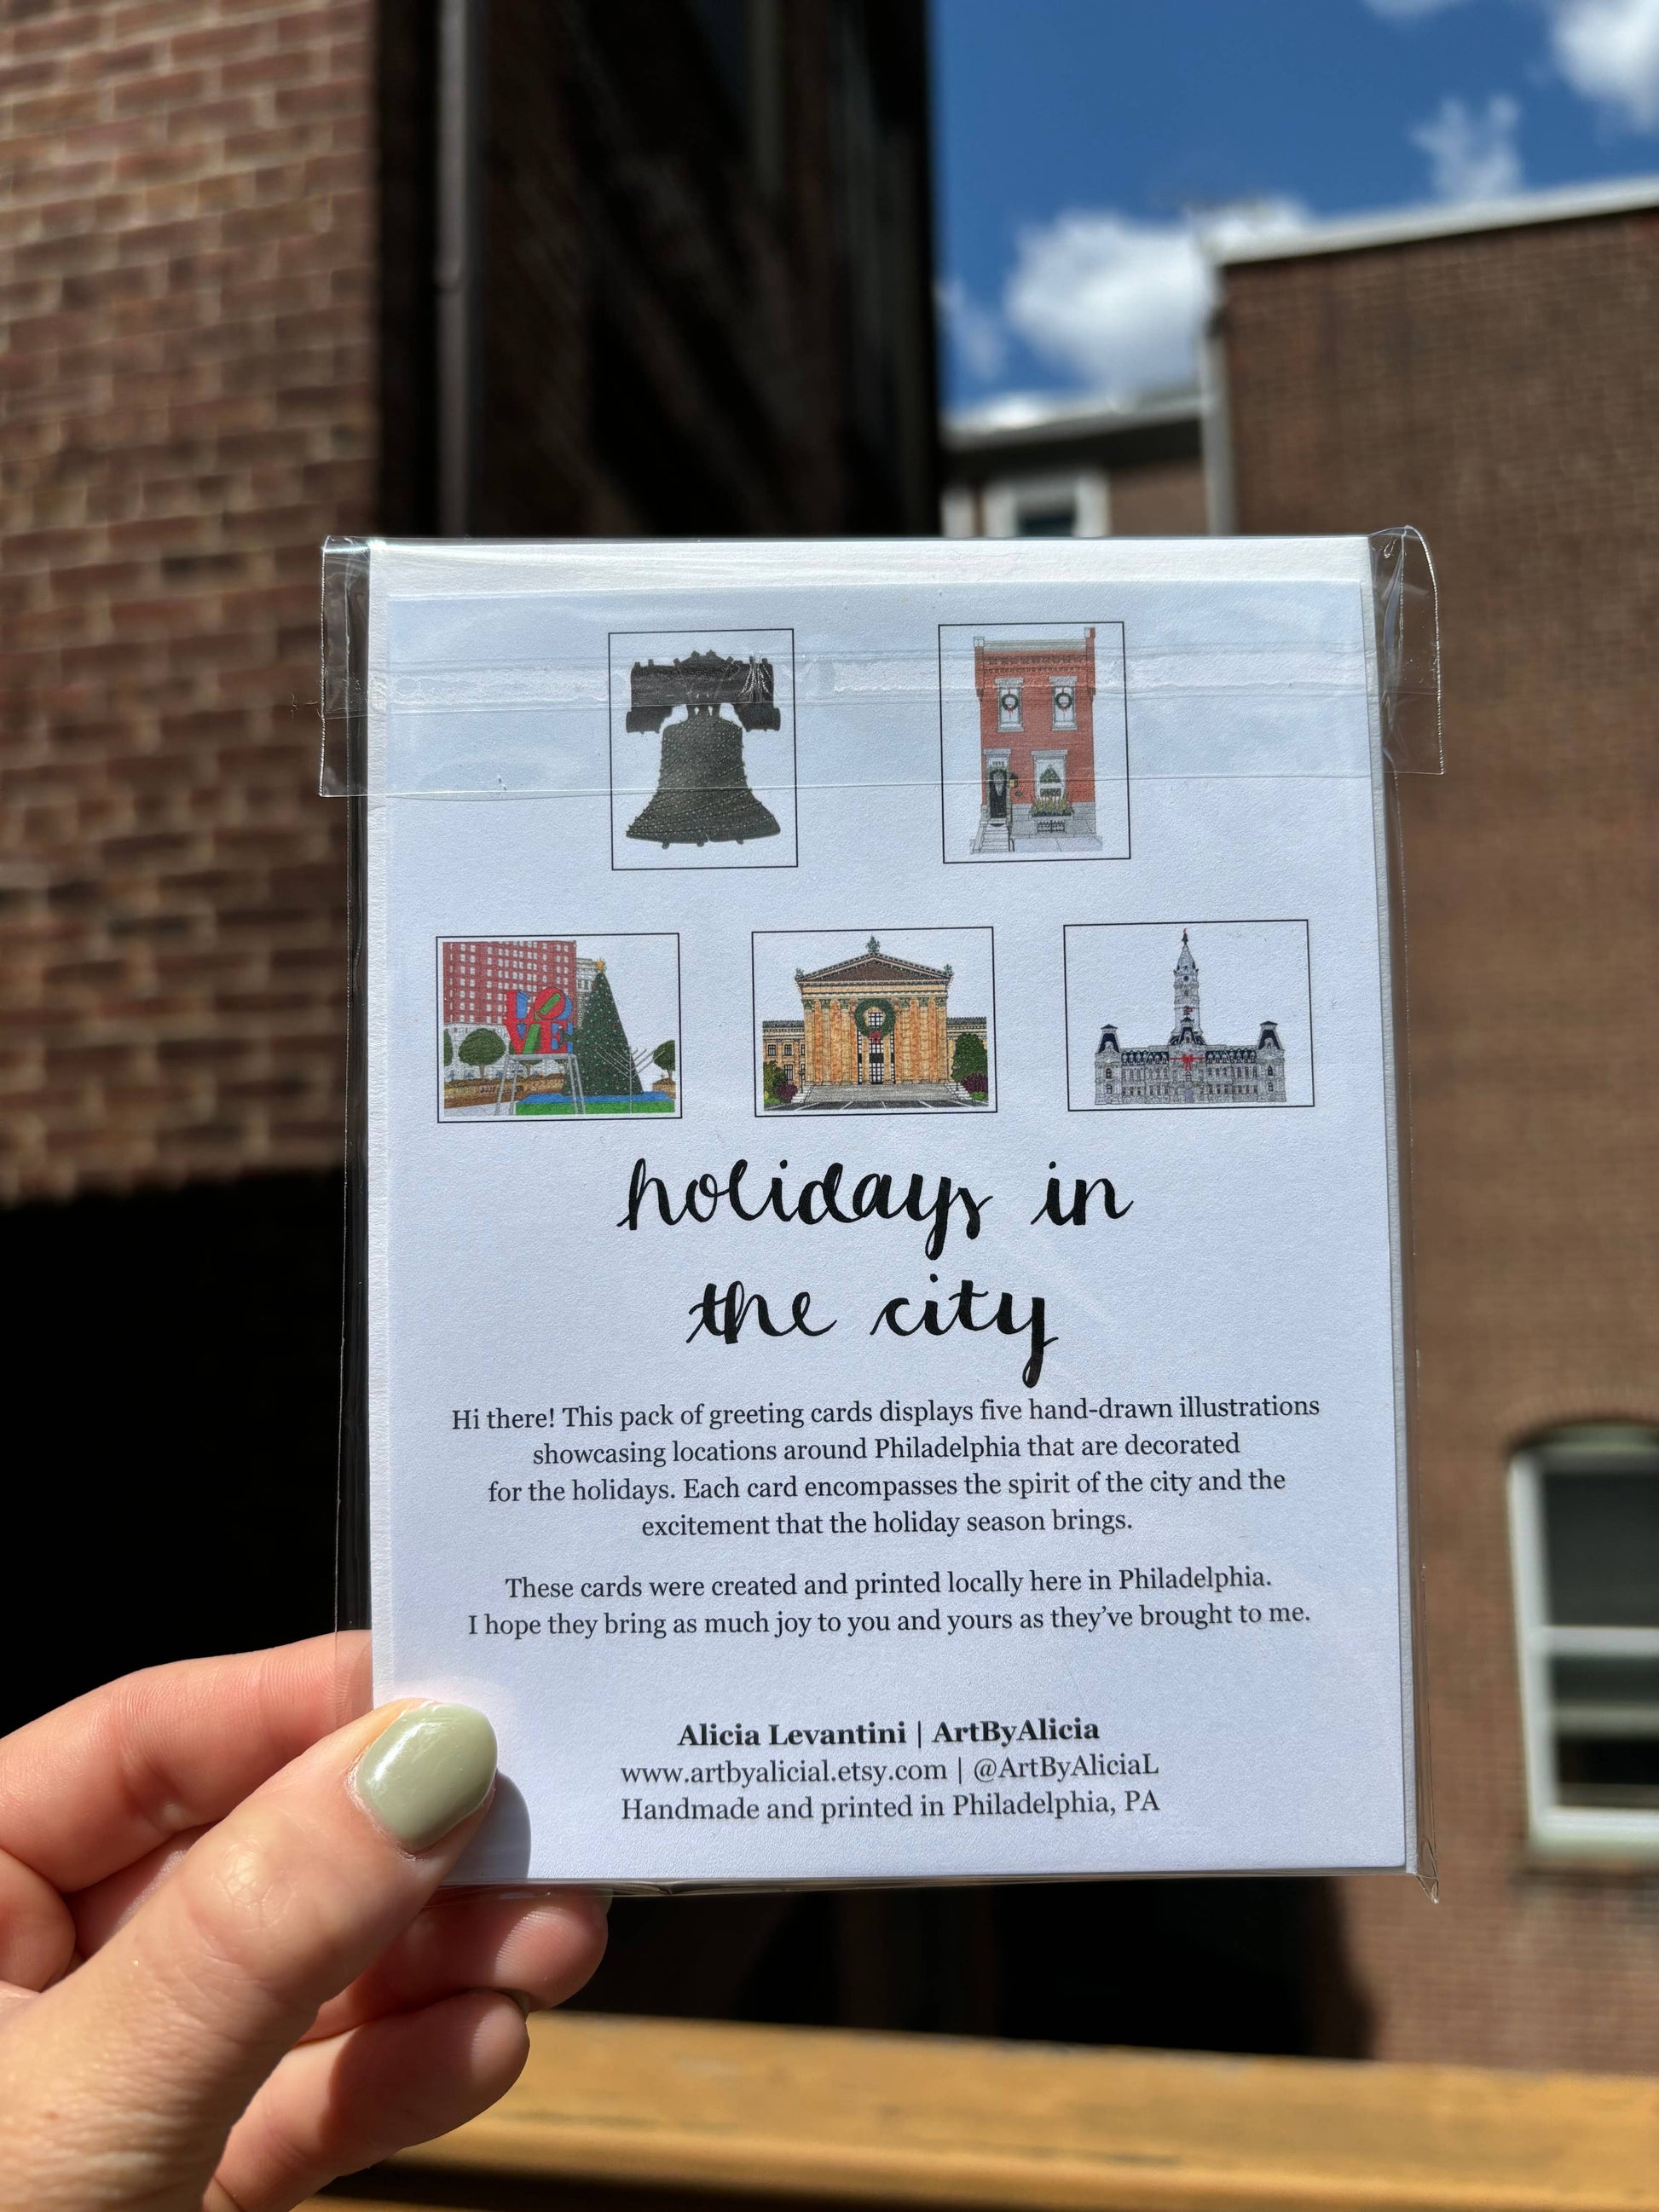 LOVE
holidays in
the city
Hi there! This pack of greeting cards displays five hand-drawn illustrations
showcasing locations around Philadelphia that are decorated
for the holidays. Each card encompasses the spirit of the city and the
excitement that the holiday season brings.
These cards were created and printed locally here in Philadelphia.
I hope they bring as much joy to you and yours as they've brought to me.
Alicia Levantini | ArtByAlicia
www.artbyalicial.etsy.com | @ArtByAliciaL
Handmade and printed in Philadelphia, PA